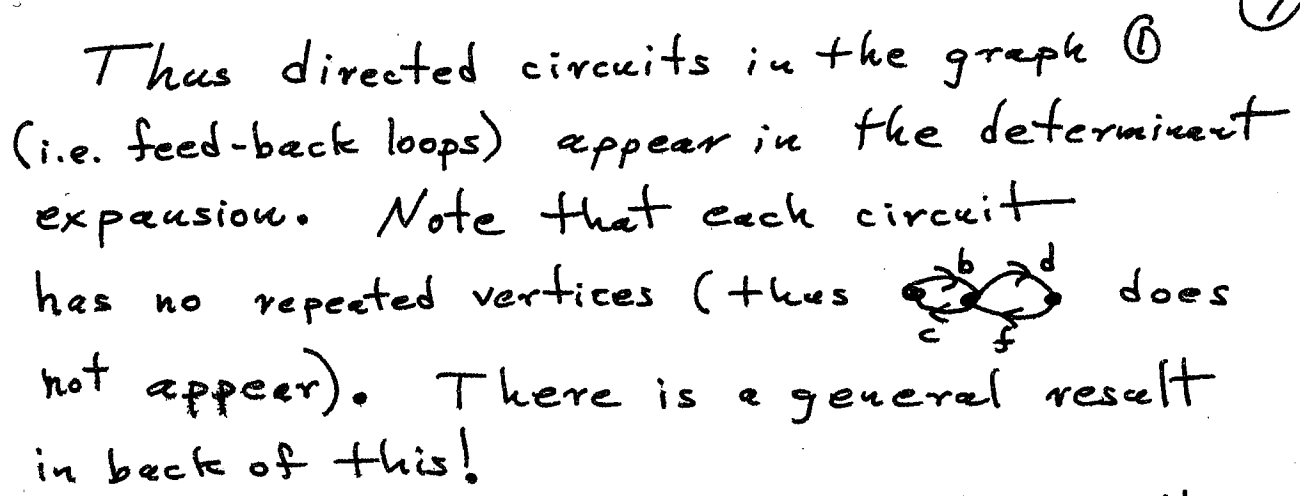 Thus directed circuits in the graph ①
(i.e. feed-back loops) appear in the determinant
expansion. Note that each circuit
has no repeated vertices (thus b d c f does
not appear). There is a general result
in back of this!